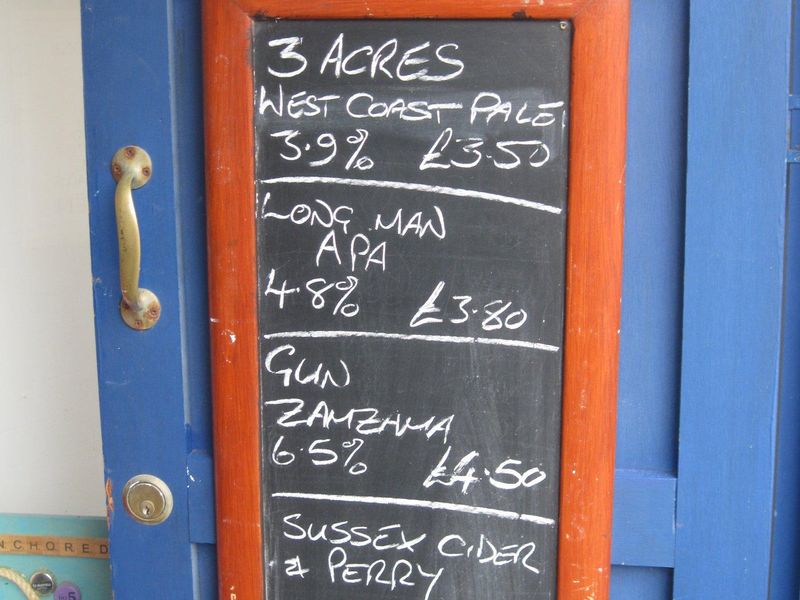 3 ACRES
WEST COAST PALE
3.9% £3.50
LONG MAN
APA
4.8% £3.80
GUN
ZAMZAMA
6.5% £4.50
SUSSEX CIDER
& PERRY
NCHORED